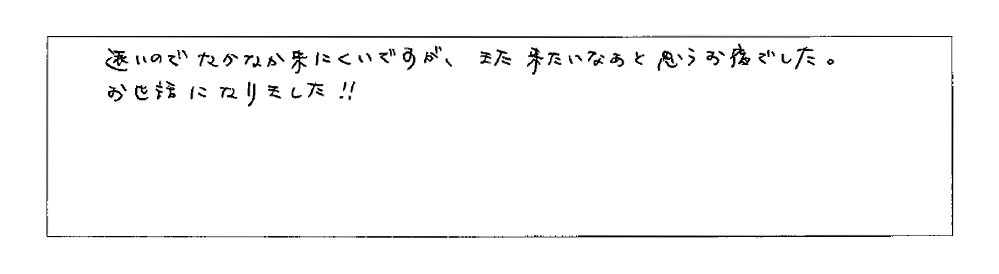 遠いのでなかなか来にくいですが、また来たいなぁと思うお宿でした。
お世話になりました!!